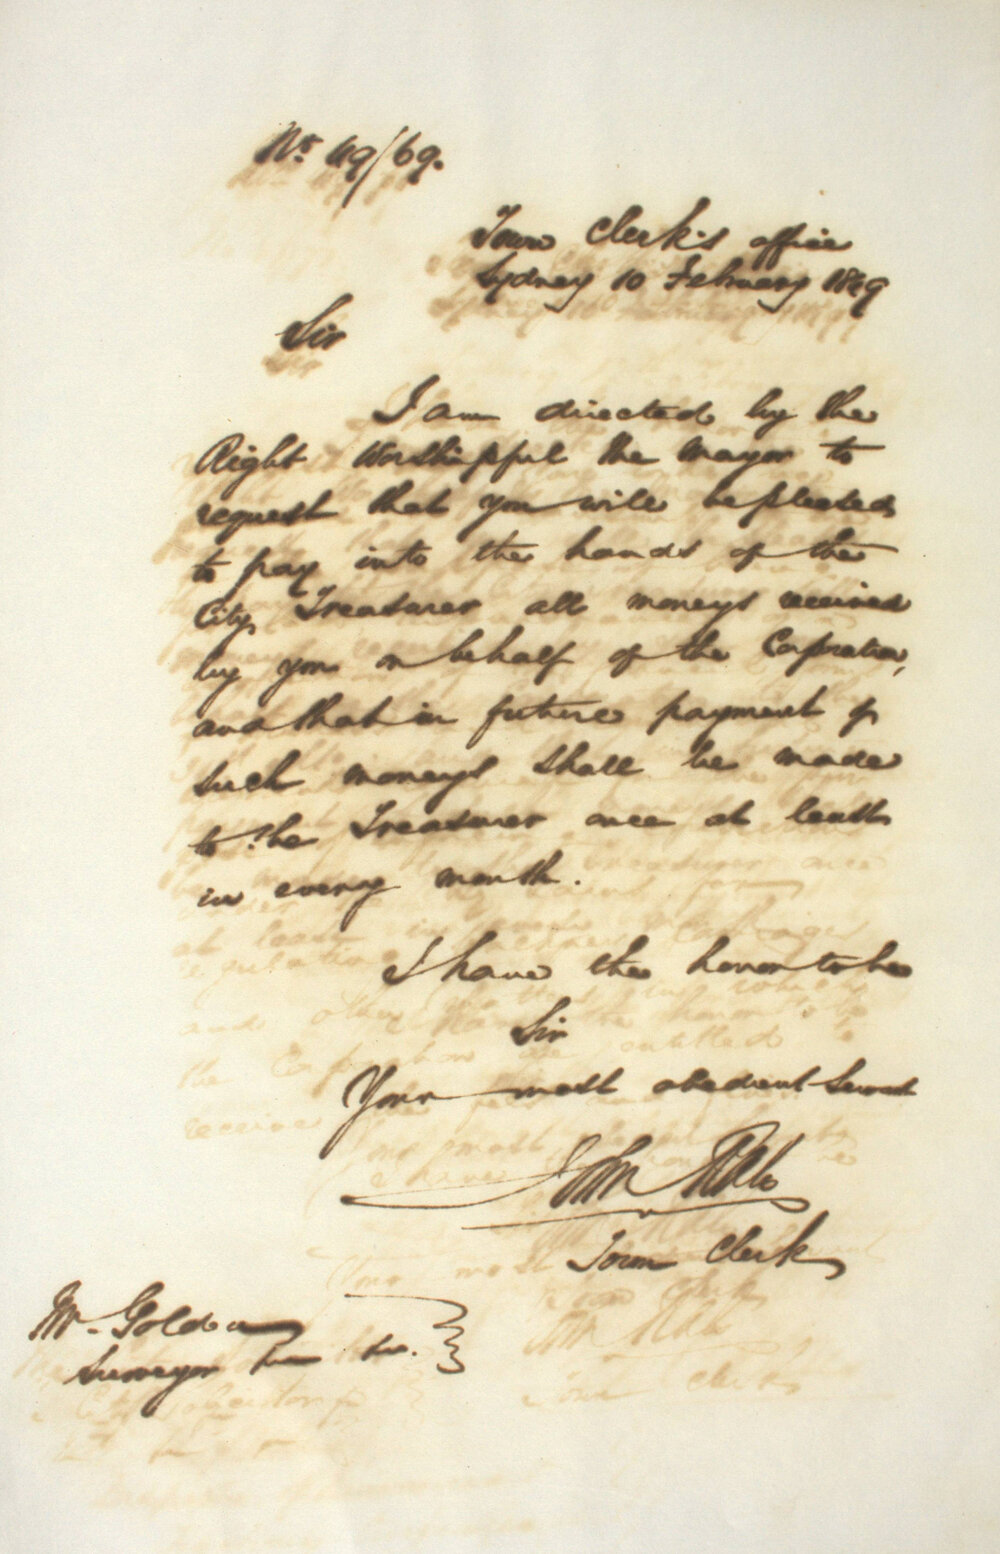 No. 49/69.
Town Clerk's office
Sydney 10 February 1869
Sir
I am directed by the
Right Worshipful the Mayor to
request that you will be pleased
to pay into the hands of the
City Treasurer all moneys received
by you on behalf of the Corporation,
and that in future payment of
such moneys shall be made
to the Treasurer once at least
in every month.
I have the honor to be
Sir
Your most obedient Servant
John
Town Clerk
Mr. Golden
Surveyor